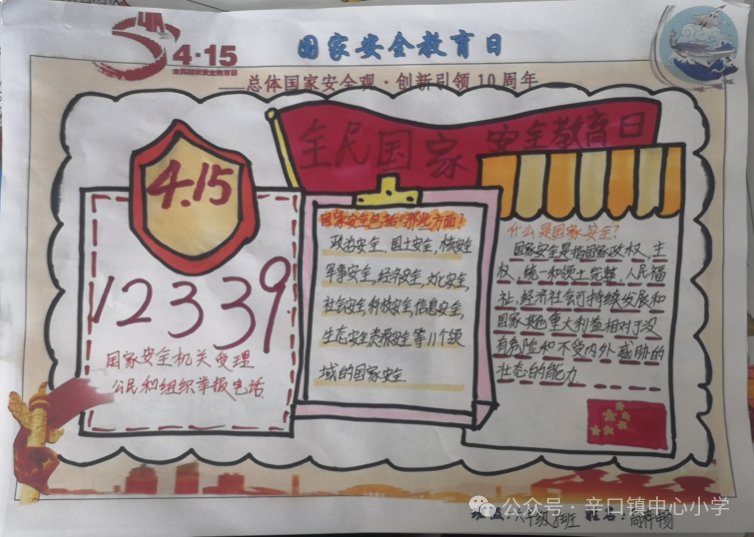 4·15
全民国家安全教育日
国家安全教育日
——总体国家安全观·创新引领10周年
全民国家安全教育日
4.15
12339
国家安全机关受理
公民和组织举报电话
国家安全包括哪些方面?
政治安全、国土安全、核安全
军事安全,经济安全,文化安全,
社会安全,科技安全,信息安全,
生态安全资源安全等11个领
域的国家安全.
什么是国家安全?
国家安全是指国家政权,主
权、统一和领土完整、人民福
祉、经济社会可持续发展和
国家其他重大利益相对于没
有危险和不受内外威胁的
状态的能力.
公众号·辛口镇中心小学
班级:六年级3班 姓名: